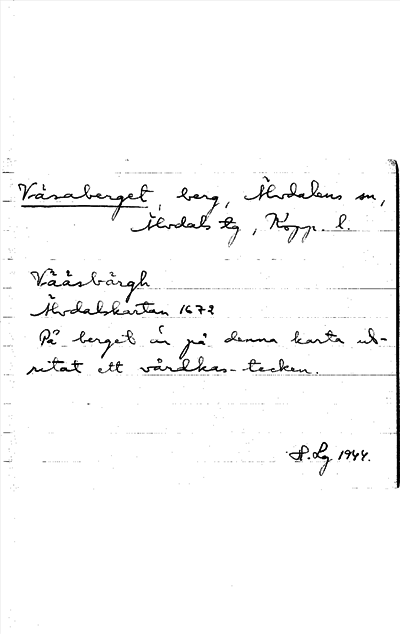 Våsaberget, berg, Älvdalens sn,
Älvdals tg, Kopp. l.
Vååsbärgh
Älvdalskartan 1672
På berget är på denna karta ut-
ritat ett vårdkas-tecken.
H. Lg 1944.